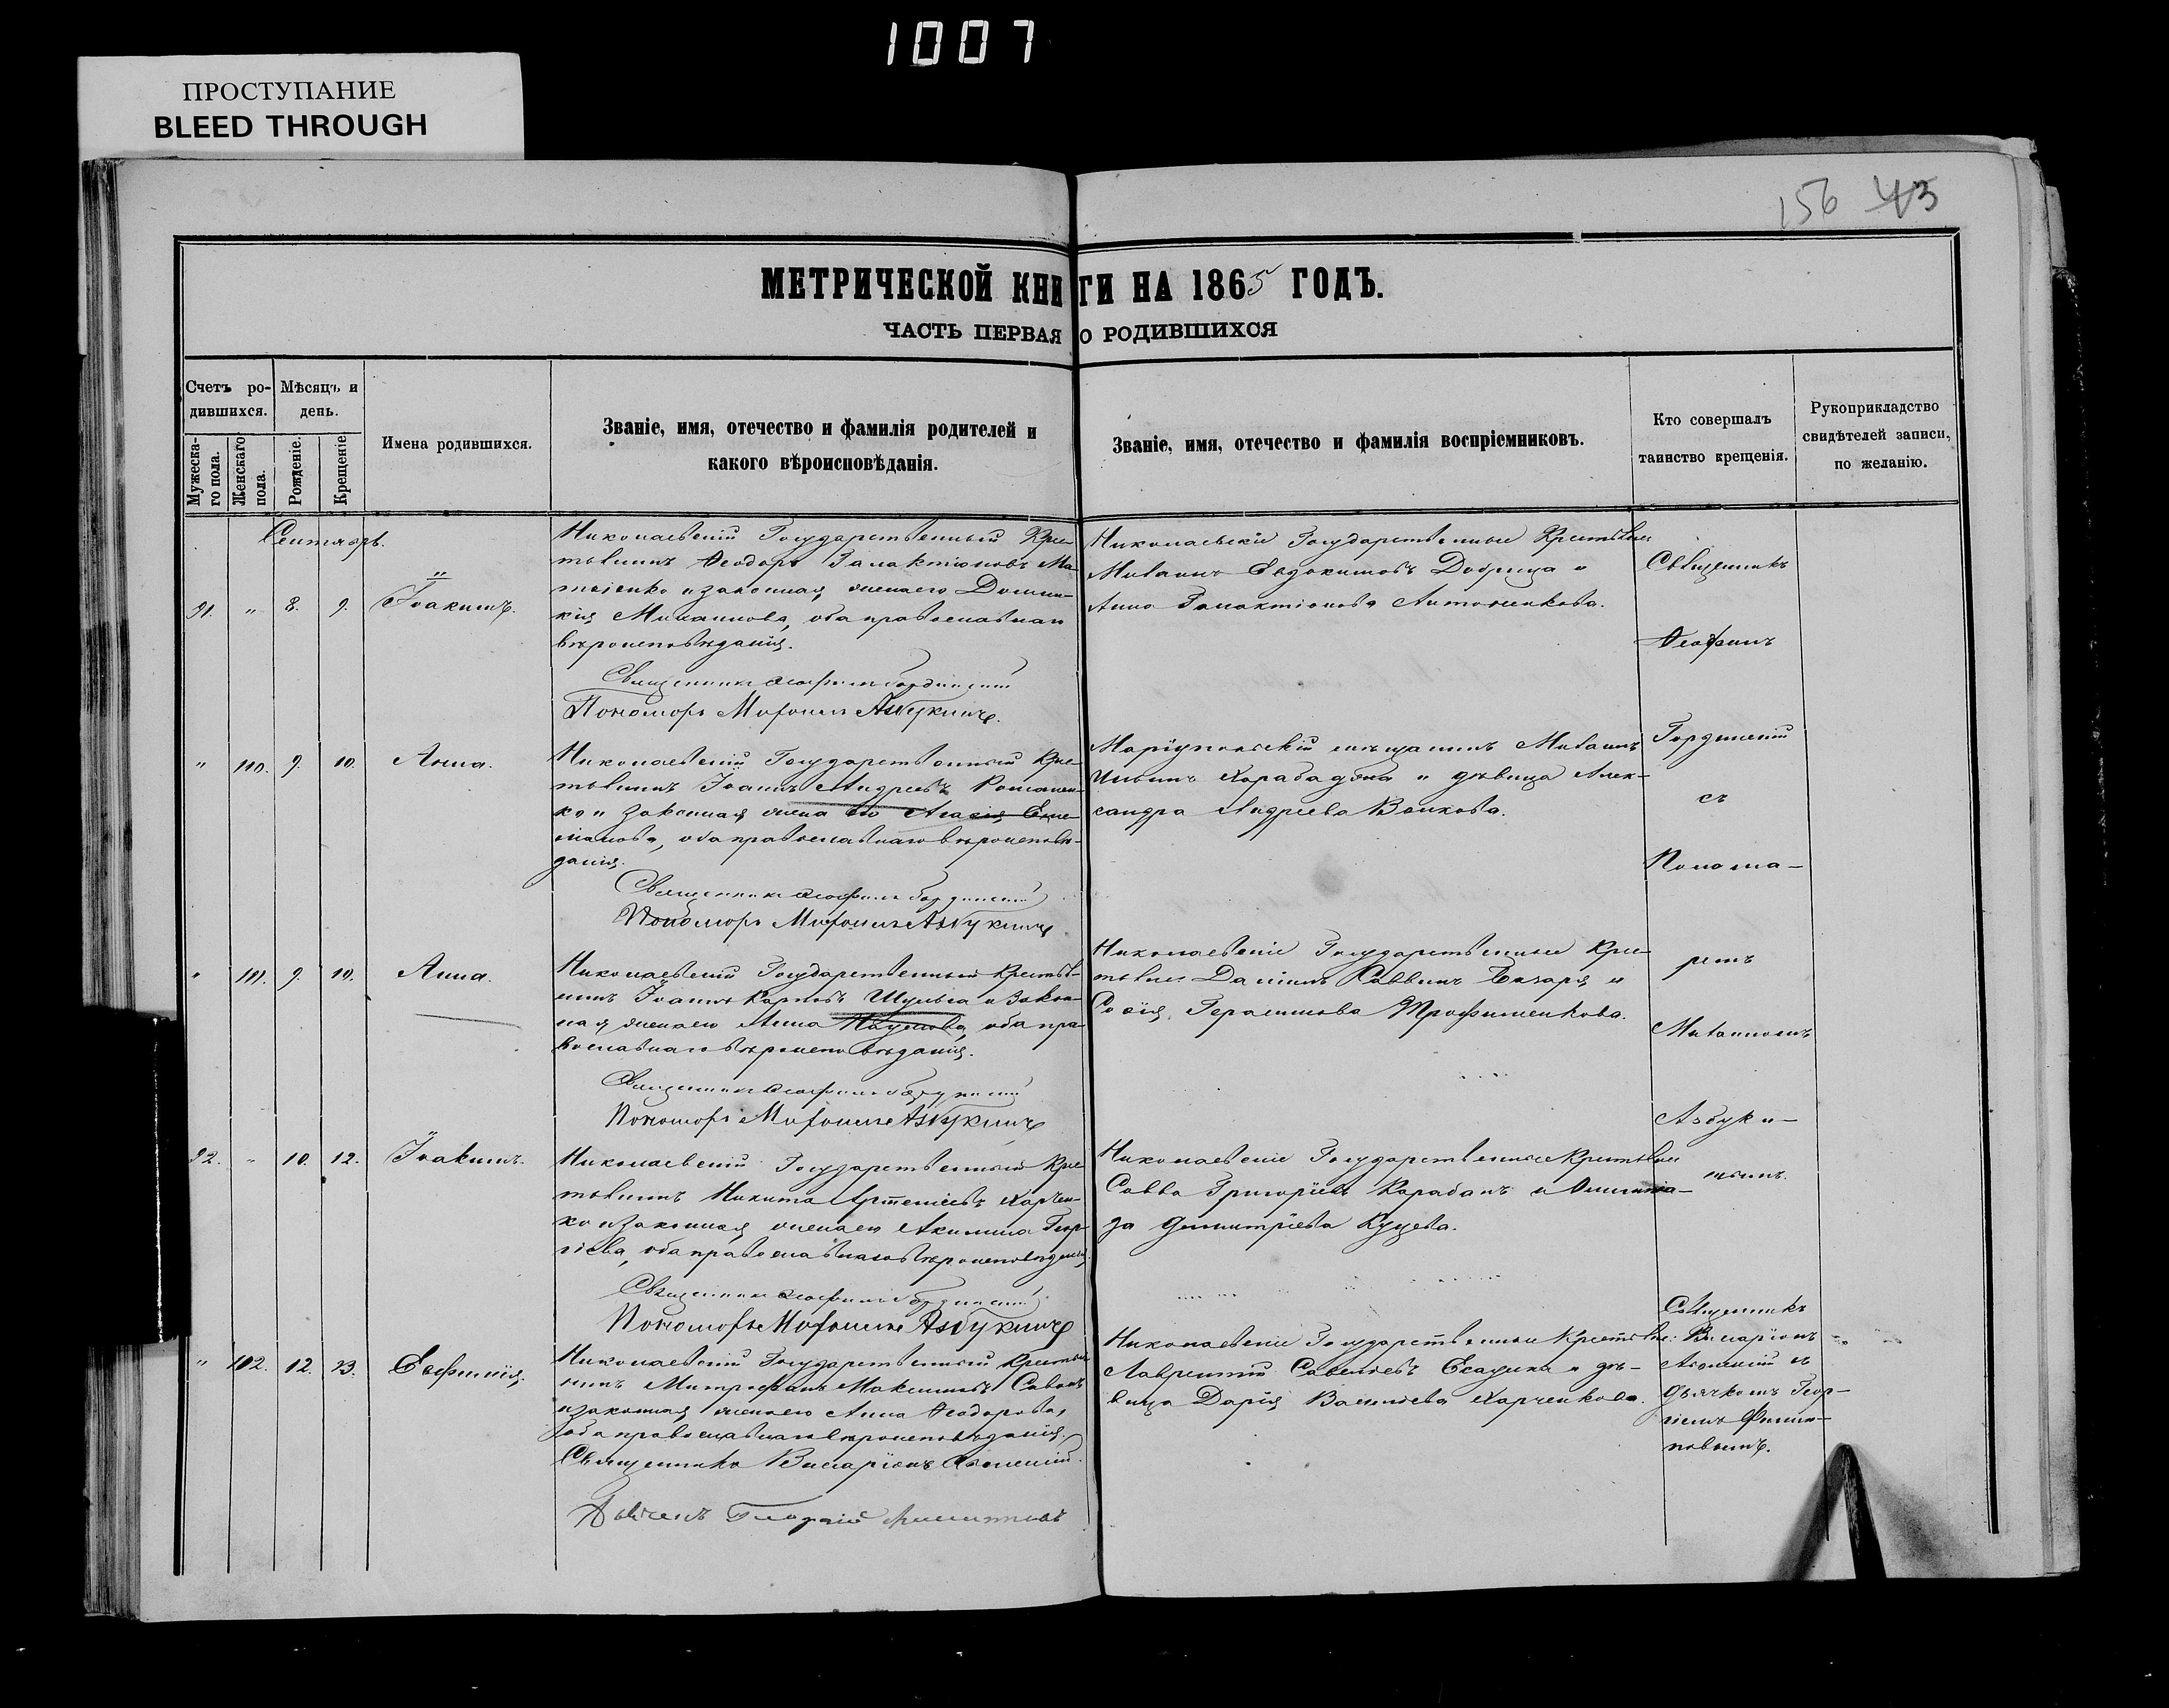 1007
ПРОСТУПАНИЕ
BLEED THROUGH
156 43
МЕТРИЧЕСКОЙ КНИГИ НА 1865 ГОДЪ.
ЧАСТЬ ПЕРВАЯ О РОДИВШИХСЯ
Счетъ ро-
дившихся.
Мѣсяцъ и
день.
Мужеска-
го пола.
Женскаго
пола.
Рожденіе.
Крещеніе
Имена родившихся.
Званіе, имя, отечество и фамилія родителей и
какого вѣроисповѣданія.
Званіе, имя, отечество и фамилія воспріемниковъ.
Кто совершалъ
таинство крещенія.
Рукоприкладство
свидѣтелей записи,
по желанію.
Сентябрь.
91. " 8. 9. Іоакимъ.
Николаевскій Государственный Крес-
тьянинъ Ѳеодоръ Галактіоновъ
и законная жена его Домни-
кія, оба православнаго
вѣроисповѣданія.
Священникъ Ѳеофилъ Гординскій
Пономарь Азбукинъ.
Николаевскіе Государственные Крестьяне
Евдокимовъ Добрица и
Анна Галактіонова Антоненкова.
Священникъ
Ѳеофилъ
Гординскій
съ
Понома-
ремъ
Азбуки-
нымъ.
" 110. 9. 10. Анна.
Николаевскій Государственный Крес-
тьянинъ Іоаннъ Андреевъ Романен-
ко и законная жена его
оба православнаго вѣроисповѣ-
данія.
Священникъ Ѳеофилъ Гординскій
Пономарь Азбукинъ
Маріупольскій мѣщанинъ
Ильинъ и дѣвица Алек-
сандра Андреева Волкова.
" 111. 9. 10. Анна.
Николаевскій Государственный Крестья-
нинъ Іоаннъ Карповъ Шульга и закон-
ная жена его Анна Наумова, оба пра-
вославнаго вѣроисповѣданія.
Священникъ Ѳеофилъ Гординскій
Пономарь Азбукинъ
Николаевскіе Государственные Крес-
тьяне: Даніилъ Саввинъ и
Софія Герасимова Трофименкова.
92. " 10. 12. Іоакимъ.
Николаевскій Государственный Крес-
тьянинъ Никита Артеміевъ Харчен-
ко и законная жена его Акилина Геор-
гіева, оба православнаго вѣроисповѣданія.
Священникъ Ѳеофилъ Гординскій
Пономарь Азбукинъ
Николаевскіе Государственные Крестьяне
Савва Григоріевъ Карабанъ и Олимпіа-
да Димитріева Куцева.
" 112. 12. 23. Евфимія.
Николаевскій Государственный Крестья-
нинъ Митрофанъ Максимовъ
и законная жена его Анна Ѳеодорова,
оба православнаго вѣроисповѣданія.
Священникъ Виссаріонъ
Дьячекъ Георгій
Николаевскіе Государственные Крестьяне:
Лаврентій Савельевъ и дѣ-
вица Дарія Васильева Харченкова.
Священникъ
Виссаріонъ
съ
Дьячкомъ Геор-
гіемъ Филип-
повымъ.